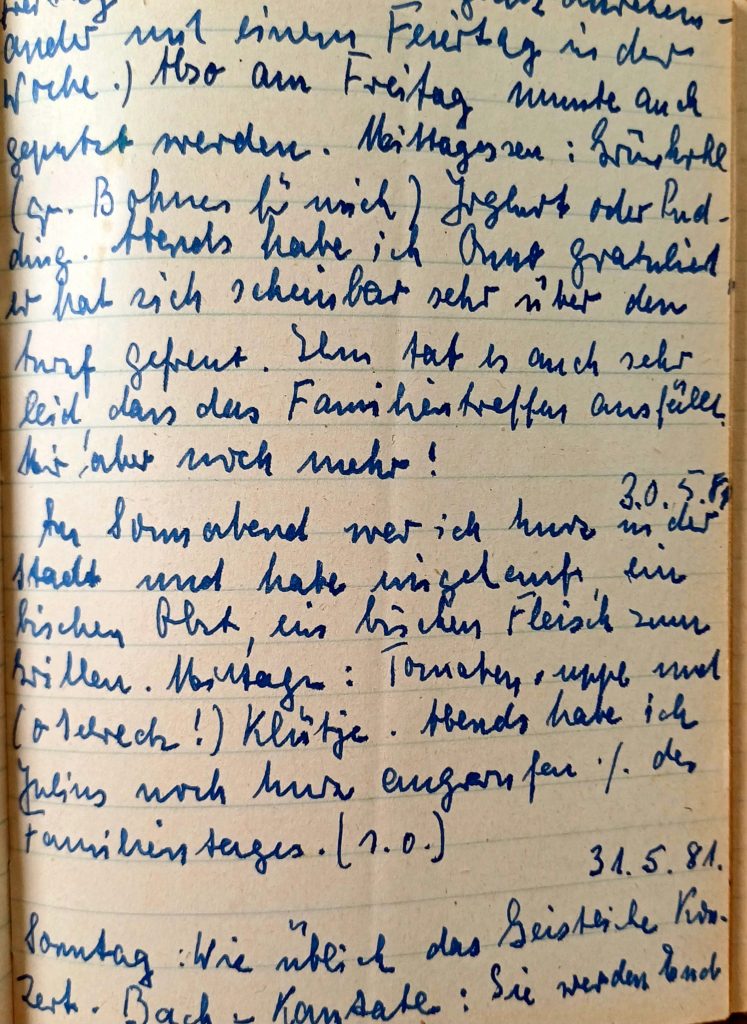 ander mit einem Feiertag in der
Woche.) Also am Freitag musste auch
geputzt werden. Mittagessen: Grünkohl
(gr. Bohnen für mich) Joghurt oder Pud-
ding. Abends habe ich Onno gratuliert
er hat sich scheinbar sehr über den
Anruf gefreut. Ihm tat es auch sehr
leid, dass das Familientreffen ausfällt.
Mir aber noch mehr!
30.5.81
Am Sonnabend war ich kurz in der
Stadt und habe eingekauft, ein
bischen Obst, ein bischen Fleisch zum
Grillen. Mittags: Tomatensuppe und
(o Schreck!) Klütje. Abends habe ich
Julius noch kurz angerufen ·/. des
Familientages. (s.o.)
31.5.81.
Sonntag: Wie üblich das Geistliche Kon-
zert. Bach-Kantate: Sie werden Euch